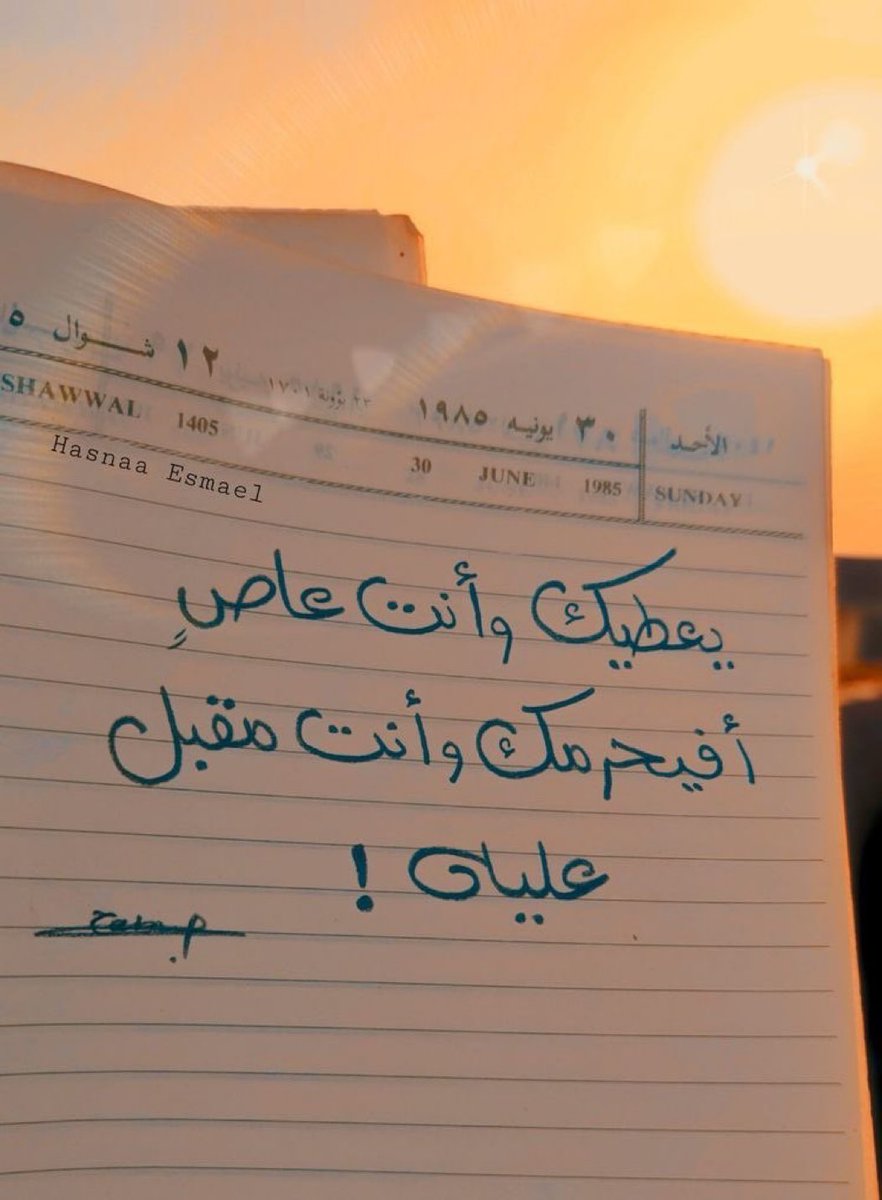 ١٢ شـــوال ٥
SHAWWAL 1405
٣٠ يونيه ١٩٨٥
30 JUNE 1985
الأحـد
SUNDAY
Hasnaa Esmael
يعطيك وأنت عاصٍ
أفيحرمك وأنت مقبل
عليه !